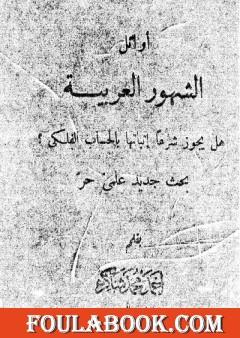 أوائل
الشهور العربية
هل يجوز شرعاً إثباتها بالحساب الفلكي ؟
بحث جديد علمي حر
بقلم
أحمد محمد شاكر
FOULABOOK.COM